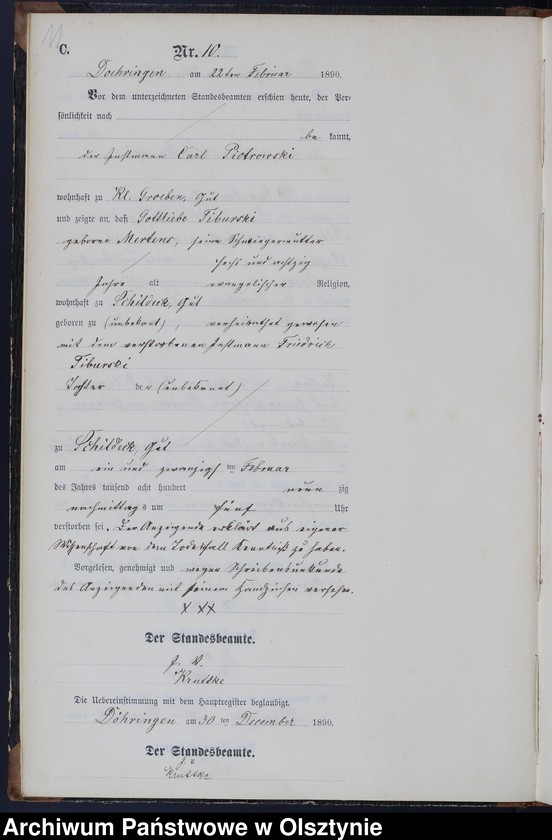 C.
Nr. 10.
Doehringen am 22ten Februar 1890.
Vor dem unterzeichneten Standesbeamten erschien heute, der Per-
sönlichkeit nach
be kannt,
der Instmann Carl Piotrowski
wohnhaft zu Kl. Groeben, Gut
und zeigte an, daß Gottliebe Tiburski
geborene Mertens, seine Schwiegermutter
sechs und achtzig
Jahre alt evangelischer Religion,
wohnhaft zu Schildeck, Gut
geboren zu (unbekant), verheirathet gewesen
mit dem verstorbenen Instmann Friedrich
Tiburski
Tochter der (unbekannt)
zu Schildeck, Gut
am ein und zwanzigsten Februar
des Jahres tausend acht hundert neun zig
nachmittags um fünf Uhr
verstorben sei. Der Anzeigende erklärt aus eigener
Wissenschaft von dem Todesfall Kenntniß zu haben.
Vorgelesen, genehmigt und wegen Schreibensunkunde
des Anzeigenden mit seinem Handzeichen versehen.
X XX
Der Standesbeamte.
J. V.
Krutzke
Die Uebereinstimmung mit dem Hauptregister beglaubigt.
Döhringen am 30 ten December 1890.
Der Standesbeamte.
Krutzke
Archiwum Państwowe w Olsztynie